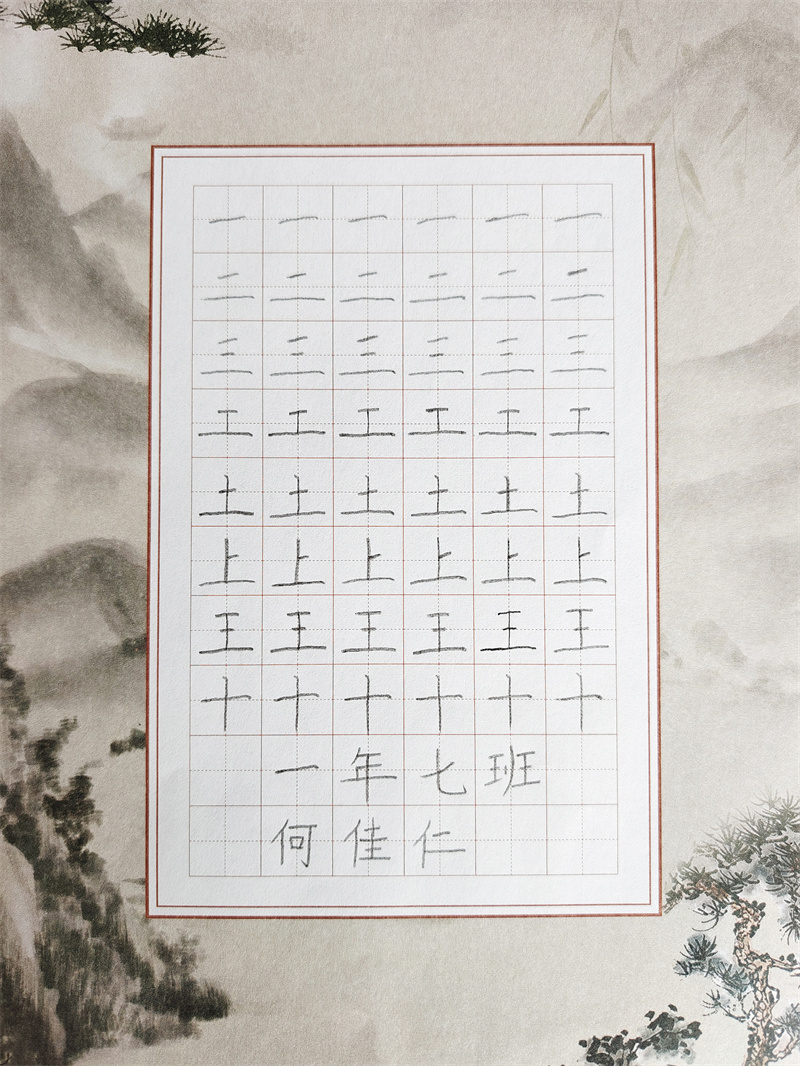 一一一一一一
二二二二二二
三三三三三三
工工工工工工
土土土土土土
上上上上上上
王王王王王王
十十十十十十
一年七班
何佳仁